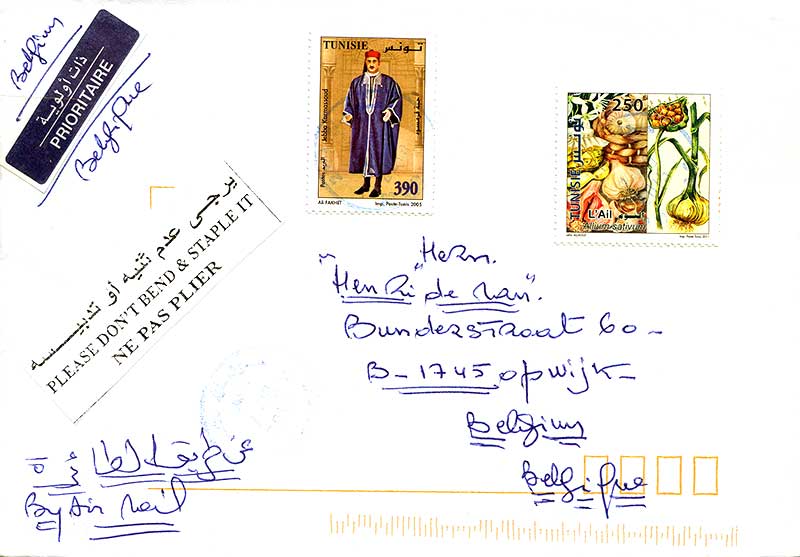 Belgium
ذات أولوية
PRIORITAIRE
Belgique
TUNISIE تونس
Jebba Kramassoud
390
Ali FAKHET Imp. Poste-Tunis 2005
250
تونس
TUNISIE
L'Ail الثوم
Allium sativum
يرجى عدم ثنيه أو تدبيسه
PLEASE DON'T BEND & STAPLE IT
NE PAS PLIER
Herrn.
"Henri de Man".
Bunderstraat 60-
B-1745, opwijk-
Belgium
Belgique
عن طريق الطائرة
By Air Mail